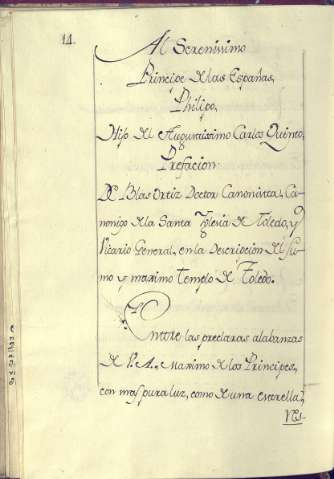 14.
Al Serenissimo
Principe de las Españas,
Philipo,
Hijo del Augustissimo Carlos Quinto,
Prefacion
De Blas Ortiz Doctor Canonista, Ca-
nonigo de la Santa Iglesia de Toledo, y
Vicario General, en la Descripcion del Su-
mo y maximo Templo de Toledo.
Entre las preclaras alabanzas
de V. A. Maximo de los Principes,
con mas pura luz, como de una estrella,